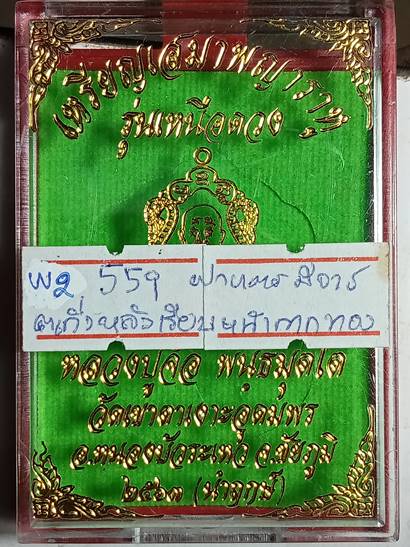 เหรียญเสมาพญาราหู
รุ่นเหนือดวง
พ2 559 ฝาบาตร มีจาร
ตะกั่วหลังเรียบหน้ากากทอง
หลวงปู่จื่อ พนฺธมุตฺโต
วัดเขาตาเงาะอุดมพร
อ.หนองบัวระเหว จ.ชัยภูมิ
๒๕๖๓ (นำฤกษ์)